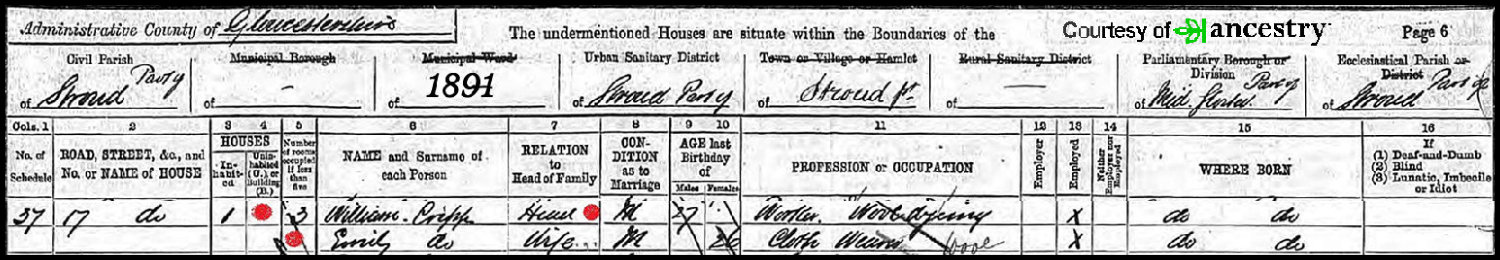 Administrative County of Gloucestershire The undermentioned Houses are situate within the Boundaries of the Courtesy of ancestry Page 6
Civil Parish Municipal Borough Municipal Ward Urban Sanitary District Town or Village or Hamlet Rural Sanitary District Parliamentary Borough or Division Ecclesiastical Parish or District
of Stroud Part of of - of 1891 of Stroud Part of of Stroud pt. of — of Mid Glos Part of of Stroud Part of
Cols. 1 2 3 4 5 6 7 8 9 10 11 12 13 14 15 16
No. of Schedule ROAD, STREET, &c., and No. or NAME of HOUSE HOUSES Inhabited Uninhabited (U.) or Building (B.) Number of rooms occupied if less than five NAME and Surname of each Person RELATION to Head of Family CONDITION as to Marriage AGE last Birthday of Males Females PROFESSION or OCCUPATION Employer Employed Neither Employer nor Employed WHERE BORN If (1) Deaf-and-Dumb (2) Blind (3) Lunatic, Imbecile or Idiot
37 17 do 1 3 William Head M 27 Woollen Wool dyeing X do do
Emily do Wife M 26 Cloth Weaver Wool X do do